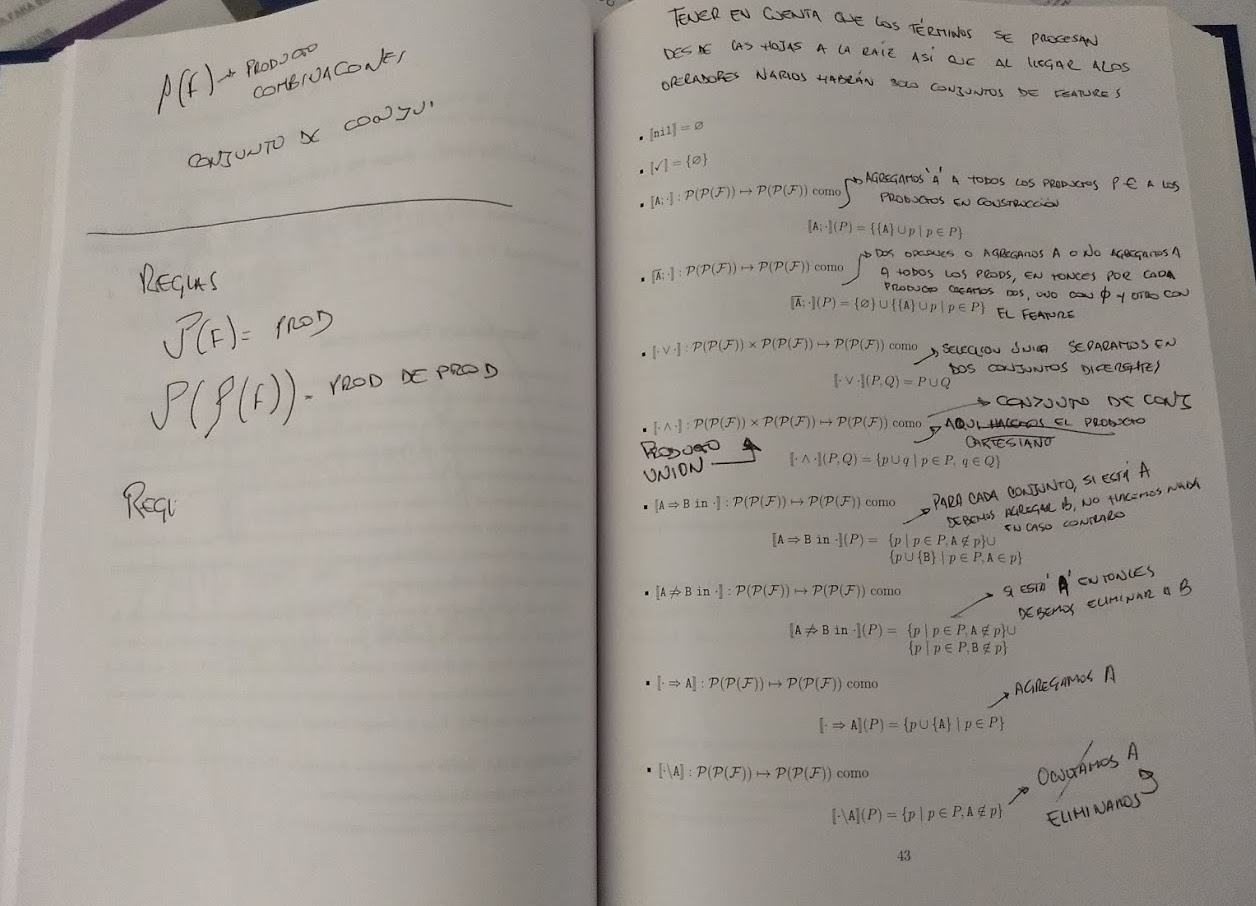 P(F) → PRODUCTO
COMBINACONES
CONJUNTO DE CONJU
REGLAS
P(F) = PROD
P(P(F)) = PROD DE PROD
REGL
TENER EN CUENTA QUE LOS TÉRMINOS SE PROCESAN
DESDE LAS HOJAS A LA RAÍZ ASÍ QUE AL LLEGAR A LOS
OPERADORES NARIOS HABRÁN SOLO CONJUNTOS DE FEATURES
▪ ⟦nil⟧ = ∅
▪ ⟦✓⟧ = {∅}
▪ ⟦A; ·⟧ : P(P(F)) ↦ P(P(F)) como → AGREGAMOS 'A' A TODOS LOS PRODUCTOS P ∈ A LOS
PRODUCTOS EN CONSTRUCCIÓN
⟦A; ·⟧(P) = {{A} ∪ p | p ∈ P}
▪ ⟦A̅; ·⟧ : P(P(F)) ↦ P(P(F)) como → DOS OPCIONES O AGREGAMOS A O NO AGREGAMOS A
A TODOS LOS PRODS, ENTONCES POR CADA
PRODUCTO CREAMOS DOS, UNO CON ∅ Y OTRO CON
⟦A̅; ·⟧(P) = {∅} ∪ {{A} ∪ p | p ∈ P} EL FEATURE
▪ ⟦· ∨ ·⟧ : P(P(F)) × P(P(F)) ↦ P(P(F)) como → SELECCION ÚNICA SEPARAMOS EN
DOS CONJUNTOS DICERENTES
⟦· ∨ ·⟧(P, Q) = P ∪ Q
→ CONJUNTO DE CONJ
▪ ⟦· ∧ ·⟧ : P(P(F)) × P(P(F)) ↦ P(P(F)) como → AQUI HACEMOS EL PRODUCTO
CARTESIANO
PRODUCTO
UNION
⟦· ∧ ·⟧(P, Q) = {p ∪ q | p ∈ P, q ∈ Q}
▪ ⟦A ⇒ B in ·⟧ : P(P(F)) ↦ P(P(F)) como → PARA CADA CONJUNTO, SI ESTÁ A
DEBEMOS AGREGAR B, NO HACEMOS NADA
EN CASO CONTRARO
⟦A ⇒ B in ·⟧(P) = {p | p ∈ P, A ∉ p} ∪
{p ∪ {B} | p ∈ P, A ∈ p}
▪ ⟦A ⇏ B in ·⟧ : P(P(F)) ↦ P(P(F)) como → SI ESTÁ 'A' ENTONCES
DEBEMOS ELIMINAR A B
⟦A ⇏ B in ·⟧(P) = {p | p ∈ P, A ∉ p} ∪
{p | p ∈ P, B ∉ p}
▪ ⟦· ⇒ A⟧ : P(P(F)) ↦ P(P(F)) como
→ AGREGAMOS A
⟦· ⇒ A⟧(P) = {p ∪ {A} | p ∈ P}
▪ ⟦·\A⟧ : P(P(F)) ↦ P(P(F)) como
→ OCULTAMOS A
⟦·\A⟧(P) = {p | p ∈ P, A ∉ p}
ELIMINAMOS
43